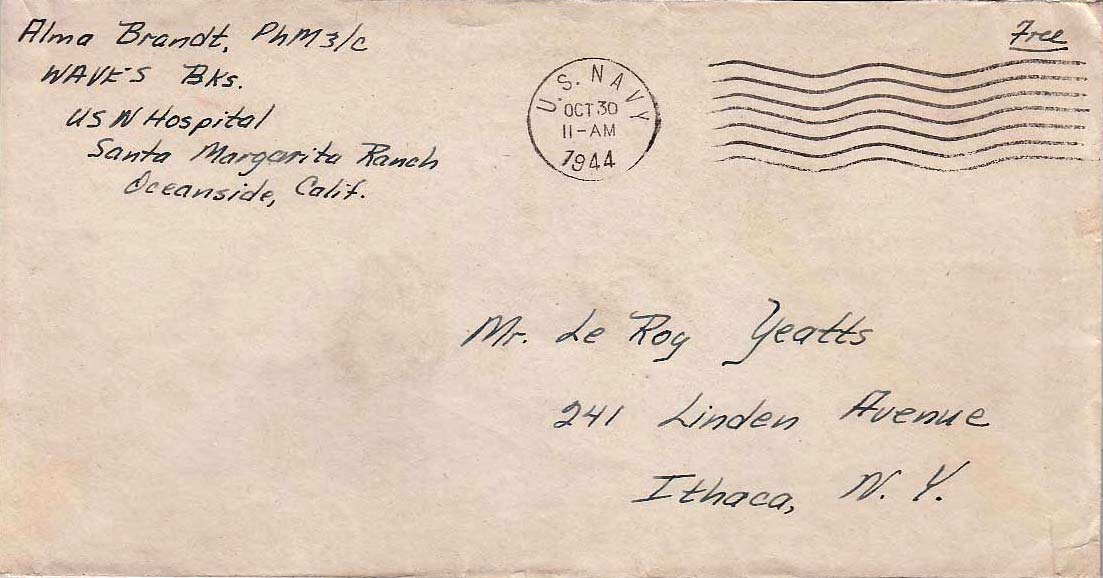 Alma Brandt, PhM3/c
WAVE'S Bks.
US N Hospital
Santa Margarita Ranch
Oceanside, Calif.
U.S. NAVY
OCT 30
11-AM
1944
Free
Mr. Le Roy Yeatts
241 Linden Avenue
Ithaca, N. Y.